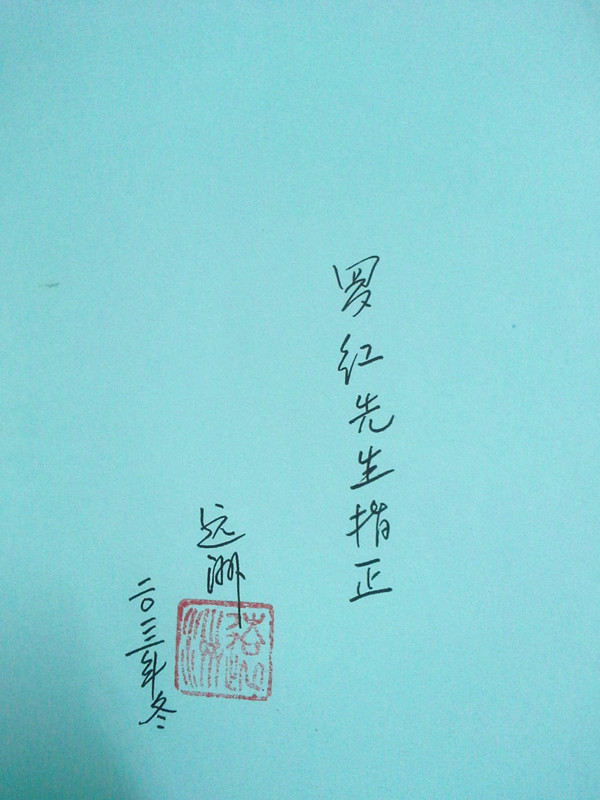 罗红先生指正
远洲
二〇一三年冬